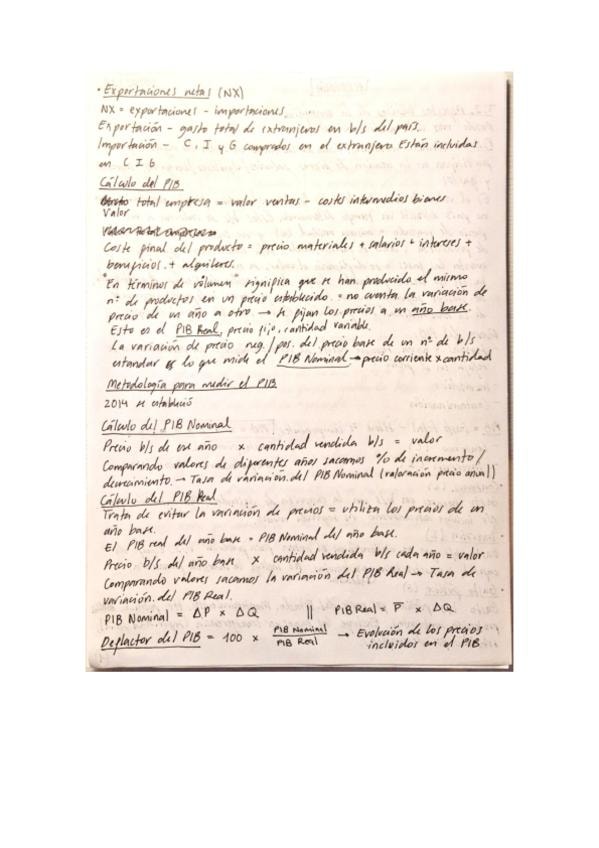 · Exportaciones netas (NX)
NX = exportaciones - importaciones
Exportación - gasto total de extranjeros en b/s del país.
Importación - C, I y G comprados en el extranjero Están incluidas
en C I G
Cálculo del PIB
total empresa = valor ventas - costes intermedios bienes
Valor
Coste final del producto = precio materiales + salarios + intereses +
beneficios + alquileres.
"En términos de volumen" significa que se han producido el mismo
nº de productos en un precio establecido = no cuenta la variación de
precio de un año a otro → se fijan los precios a un año base.
Esto es el PIB Real, precio fijo, cantidad variable.
La variación de precio neg./pos. del precio base de un nº de b/s
estandar es lo que mide el PIB Nominal → precio corriente x cantidad
Metodología para medir el PIB
2014 se estableció
Cálculo del PIB Nominal
Precio b/s de ese año x cantidad vendida b/s = valor
Comparando valores de diferentes años sacamos % de incremento/
decrecimiento. → Tasa de variación del PIB Nominal (valoración precio anual)
Cálculo del PIB Real
Trata de evitar la variación de precios = utiliza los precios de un
año base.
El PIB real del año base = PIB Nominal del año base.
Precio b/s del año base x cantidad vendida b/s cada año = valor
Comparando valores sacamos la variación del PIB Real → Tasa de
variación del PIB Real.
PIB Nominal = ΔP x ΔQ || PIB Real = P̅ x ΔQ
Deflactor del PIB = 100 x PIB Nominal / PIB Real → Evolución de los precios
incluidos en el PIB